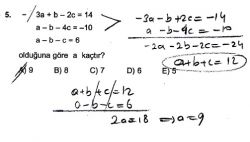 5. -/ 3a + b - 2c = 14
a - b - 4c = -10
a - b - c = 6
olduğuna göre a kaçtır?
A) 9 B) 8 C) 7 D) 6 E) 5
-3a - b + 2c = -14
a - b - 4c = -10
-2a - 2b - 2c = -24
a + b + c = 12
a + b + c = 12
a - b - c = 6
2a = 18 ⇒ a = 9